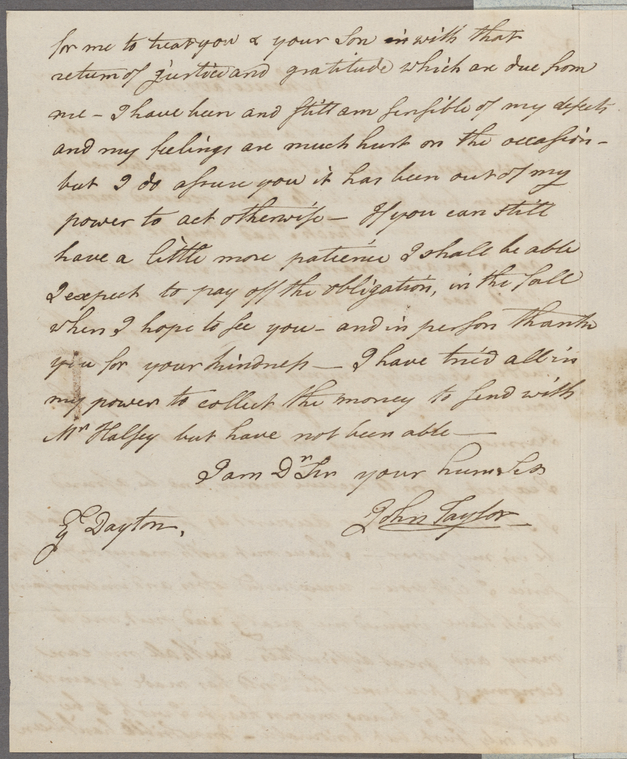 for me to treat you & your Son in with that
return of justice and gratitude which are due from
me – I have been and still am sensible of my defects
and my feelings are much hurt on the occasion –
but I do assure you it has been out of my
power to act otherwise – If you can still
have a little more patience I shall be able
I expect to pay off the obligation, in the fall
when I hope to see you – and in person thank
you for your kindness – I have tried all in
my power to collect the money to send with
Mr Halsey but have not been able –
I am Dr Sir your hum Ser
John Taylor
El Dayton.